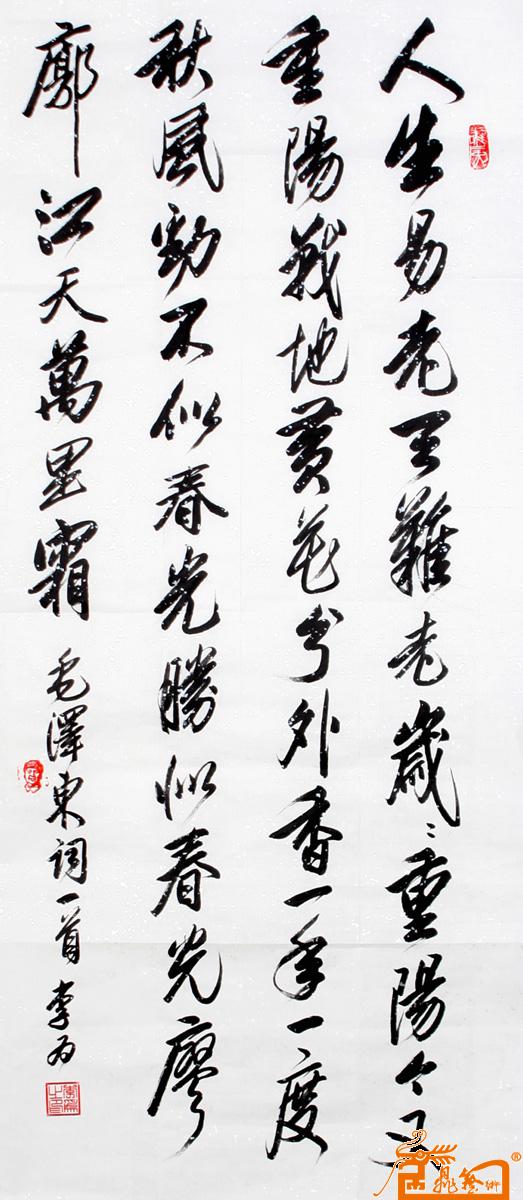 人生易老天難老歲〻重陽今又
重陽戰地黄花分外香一年一度
秋風勁不似春光勝似春光廖
廓江天萬里霜
毛澤東詞一首 李为